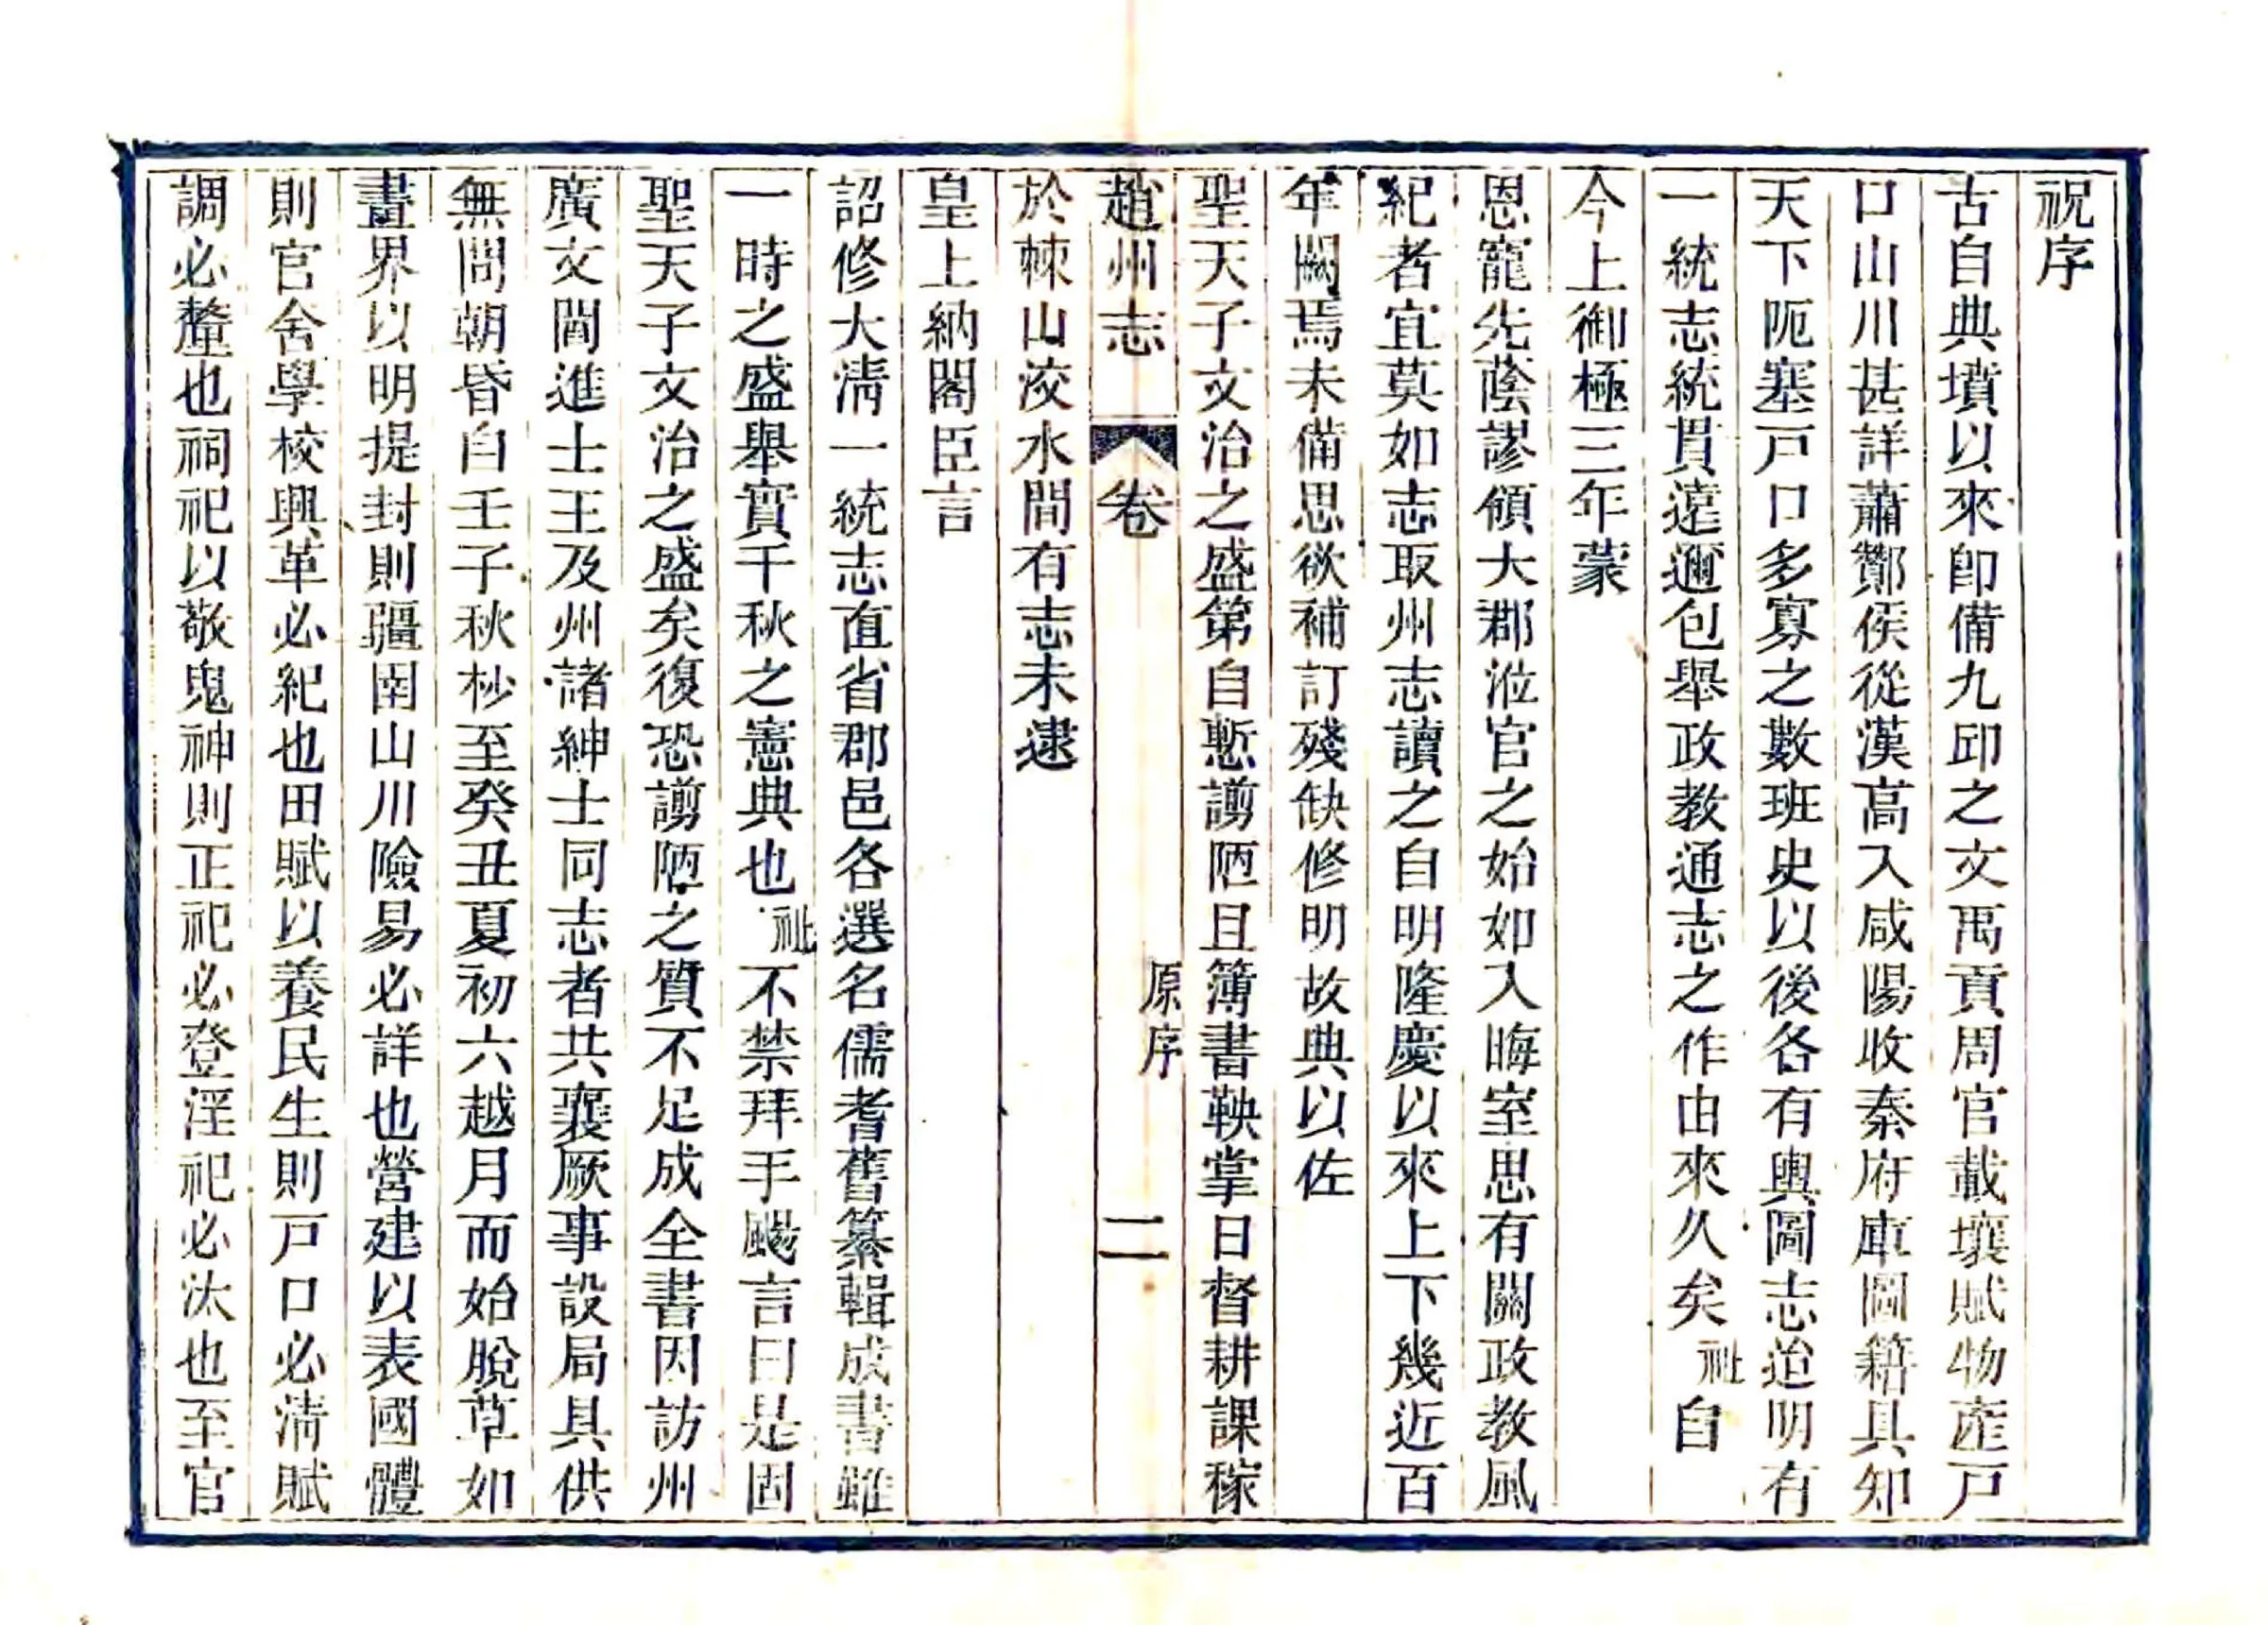 祝序
古自典墳以來卽備九邱之文禹貢周官載壤賦物産戸
口山川甚詳蕭酇侯從漢高入咸陽收秦府庫圖籍具知
天下阨塞戸口多寡之數班史以後各有輿圖志迨明有
一統志統貫遠邇包舉政教通志之作由來久矣祉自
今上御極三年蒙
恩寵先蔭謬領大郡涖官之始如入晦室思有關政教風
紀者宜莫如志取州志讀之自明隆慶以來上下幾近百
年闕焉未備思欲補訂殘缺修明故典以佐
聖天子文治之盛第自慙謭陋且簿書鞅掌日督耕課稼
趙州志 卷 原序 二
於棘山洨水間有志未逮
皇上納閣臣言
詔修大清一統志直省郡邑各選名儒耆舊纂輯成書雖
一時之盛舉實千秋之憲典也祉不禁拜手颺言曰是固
聖天子文治之盛矣復恐謭陋之質不足成全書因訪州
廣文閻進士王及州諸紳士同志者共襄厥事設局具供
無問朝昏自壬子秋杪至癸丑夏初六越月而始脫草如
畫界以明提封則疆圉山川險易必詳也營建以表國體
則官舍學校興革必紀也田賦以養民生則戸口必清賦
調必釐也祠祀以敬鬼神則正祀必登淫祀必汰也至官